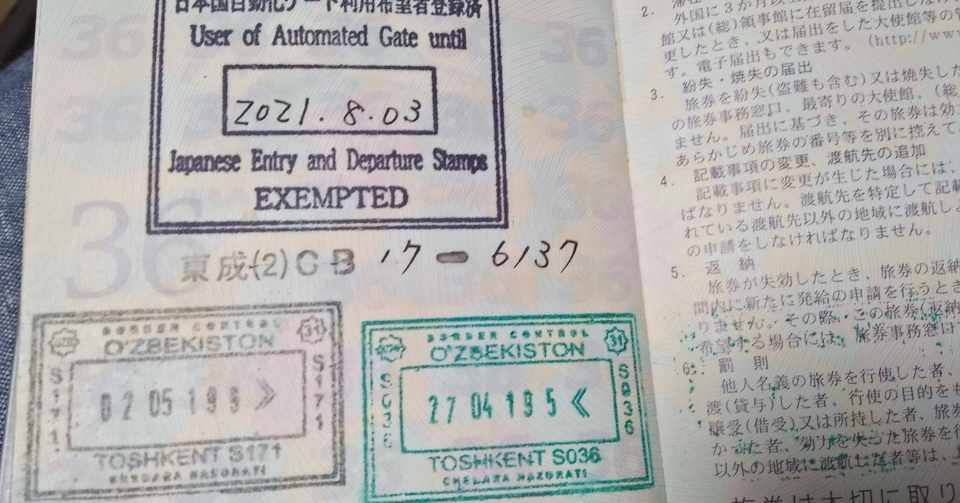 日本国自動化ゲート利用希望者登録済
User of Automated Gate until
2021.8.03
Japanese Entry and Departure Stamps
EXEMPTED
東成(2)CB 17-6137
36
BORDER CONTROL
O'ZBEKISTON
31
S171
S171
02 05 19
TOSHKENT S171
CHEGARA NAZORATI
BORDER CONTROL
O'ZBEKISTON
31
S036
S036
27 04 19
TOSHKENT S036
CHEGARA NAZORATI
2.
外国に3か月以
館又は(総)領事館に在留届を提出しな
更したとき、又は届出をした大使館等の管
す。電子届出もできます。(http://ww
3. 紛失・焼失の届出
旅券を紛失(盗難も含む)又は焼失した
の旅券事務窓口、最寄りの大使館、(総
ません。届出に基づき、その旅券は効
あらかじめ旅券の番号等を別に控えて
4. 記載事項の変更、渡航先の追加
記載事項に変更が生じた場合には、
ばなりません。渡航先を特定して記載
れている渡航先以外の地域に渡航しよ
の申請をしなければなりません。
5. 返納
旅券が失効したとき、旅券の返納
間内に新たに発給の申請を行うとき
りません。その際、この旅券(返納
希望する場合には、旅券事務窓口
6. 罰則
他人名義の旅券を行使した者、
渡(貸与)した者、行使の目的をも
譲受(借受)又は所持した者、旅
かった者、効力を失った旅券を行
以外の地域に渡航した者等は、
旅券は大切に取り